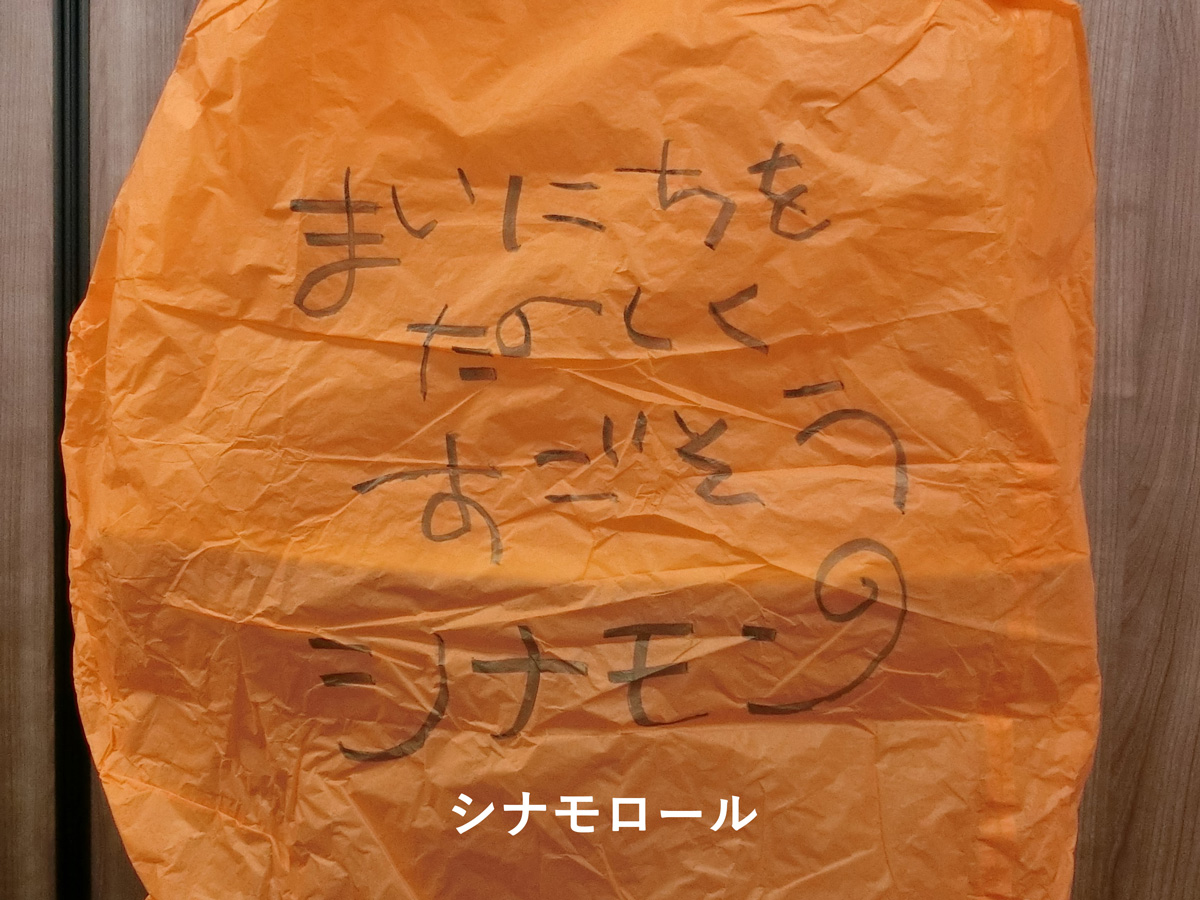 まいにちを
たのしく
すごそう
シナモン
シナモロール